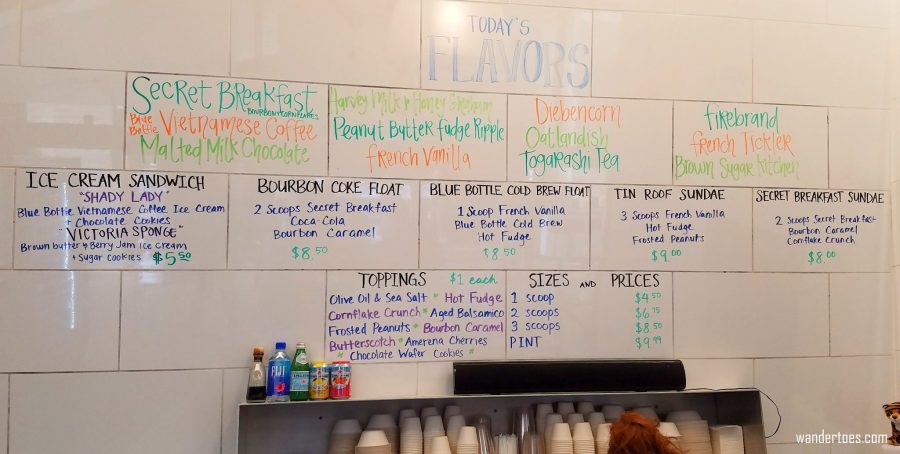 TODAY'S
FLAVORS
Secret Breakfast
BOURBON & CORNFLAKES
Blue Bottle Vietnamese Coffee
Malted Milk Chocolate
Harvey Milk & Honey Graham
Peanut Butter Fudge Ripple
French Vanilla
Diebencorn
Oatlandish
Togarashi Tea
firebrand
French Tickler
Brown Sugar Kitchen
ICE CREAM SANDWICH
"SHADY LADY"
Blue Bottle Vietnamese Coffee Ice Cream
+ Chocolate Cookies
"VICTORIA SPONGE"
Brown butter & Berry Jam ice cream
+ Sugar cookies $5.50
BOURBON COKE FLOAT
2 Scoops Secret Breakfast
Coca-Cola
Bourbon Caramel
$8.50
BLUE BOTTLE COLD BREW FLOAT
1 Scoop French Vanilla
Blue Bottle Cold Brew
Hot Fudge
$8.50
TIN ROOF SUNDAE
3 Scoops French Vanilla
Hot Fudge
Frosted Peanuts
$9.00
SECRET BREAKFAST SUNDAE
2 Scoops Secret Breakfast
Bourbon Caramel
Cornflake Crunch
$8.00
TOPPINGS $1 each
Olive Oil & Sea Salt * Hot Fudge
Cornflake Crunch * Aged Balsamico
Frosted Peanuts * Bourbon Caramel
Butterscotch * Amerena Cherries
* Chocolate Wafer Cookies *
SIZES AND PRICES
1 scoop $4.50
2 scoops $6.75
3 scoops $8.50
PINT $9.99
FIJI
wandertoes.com